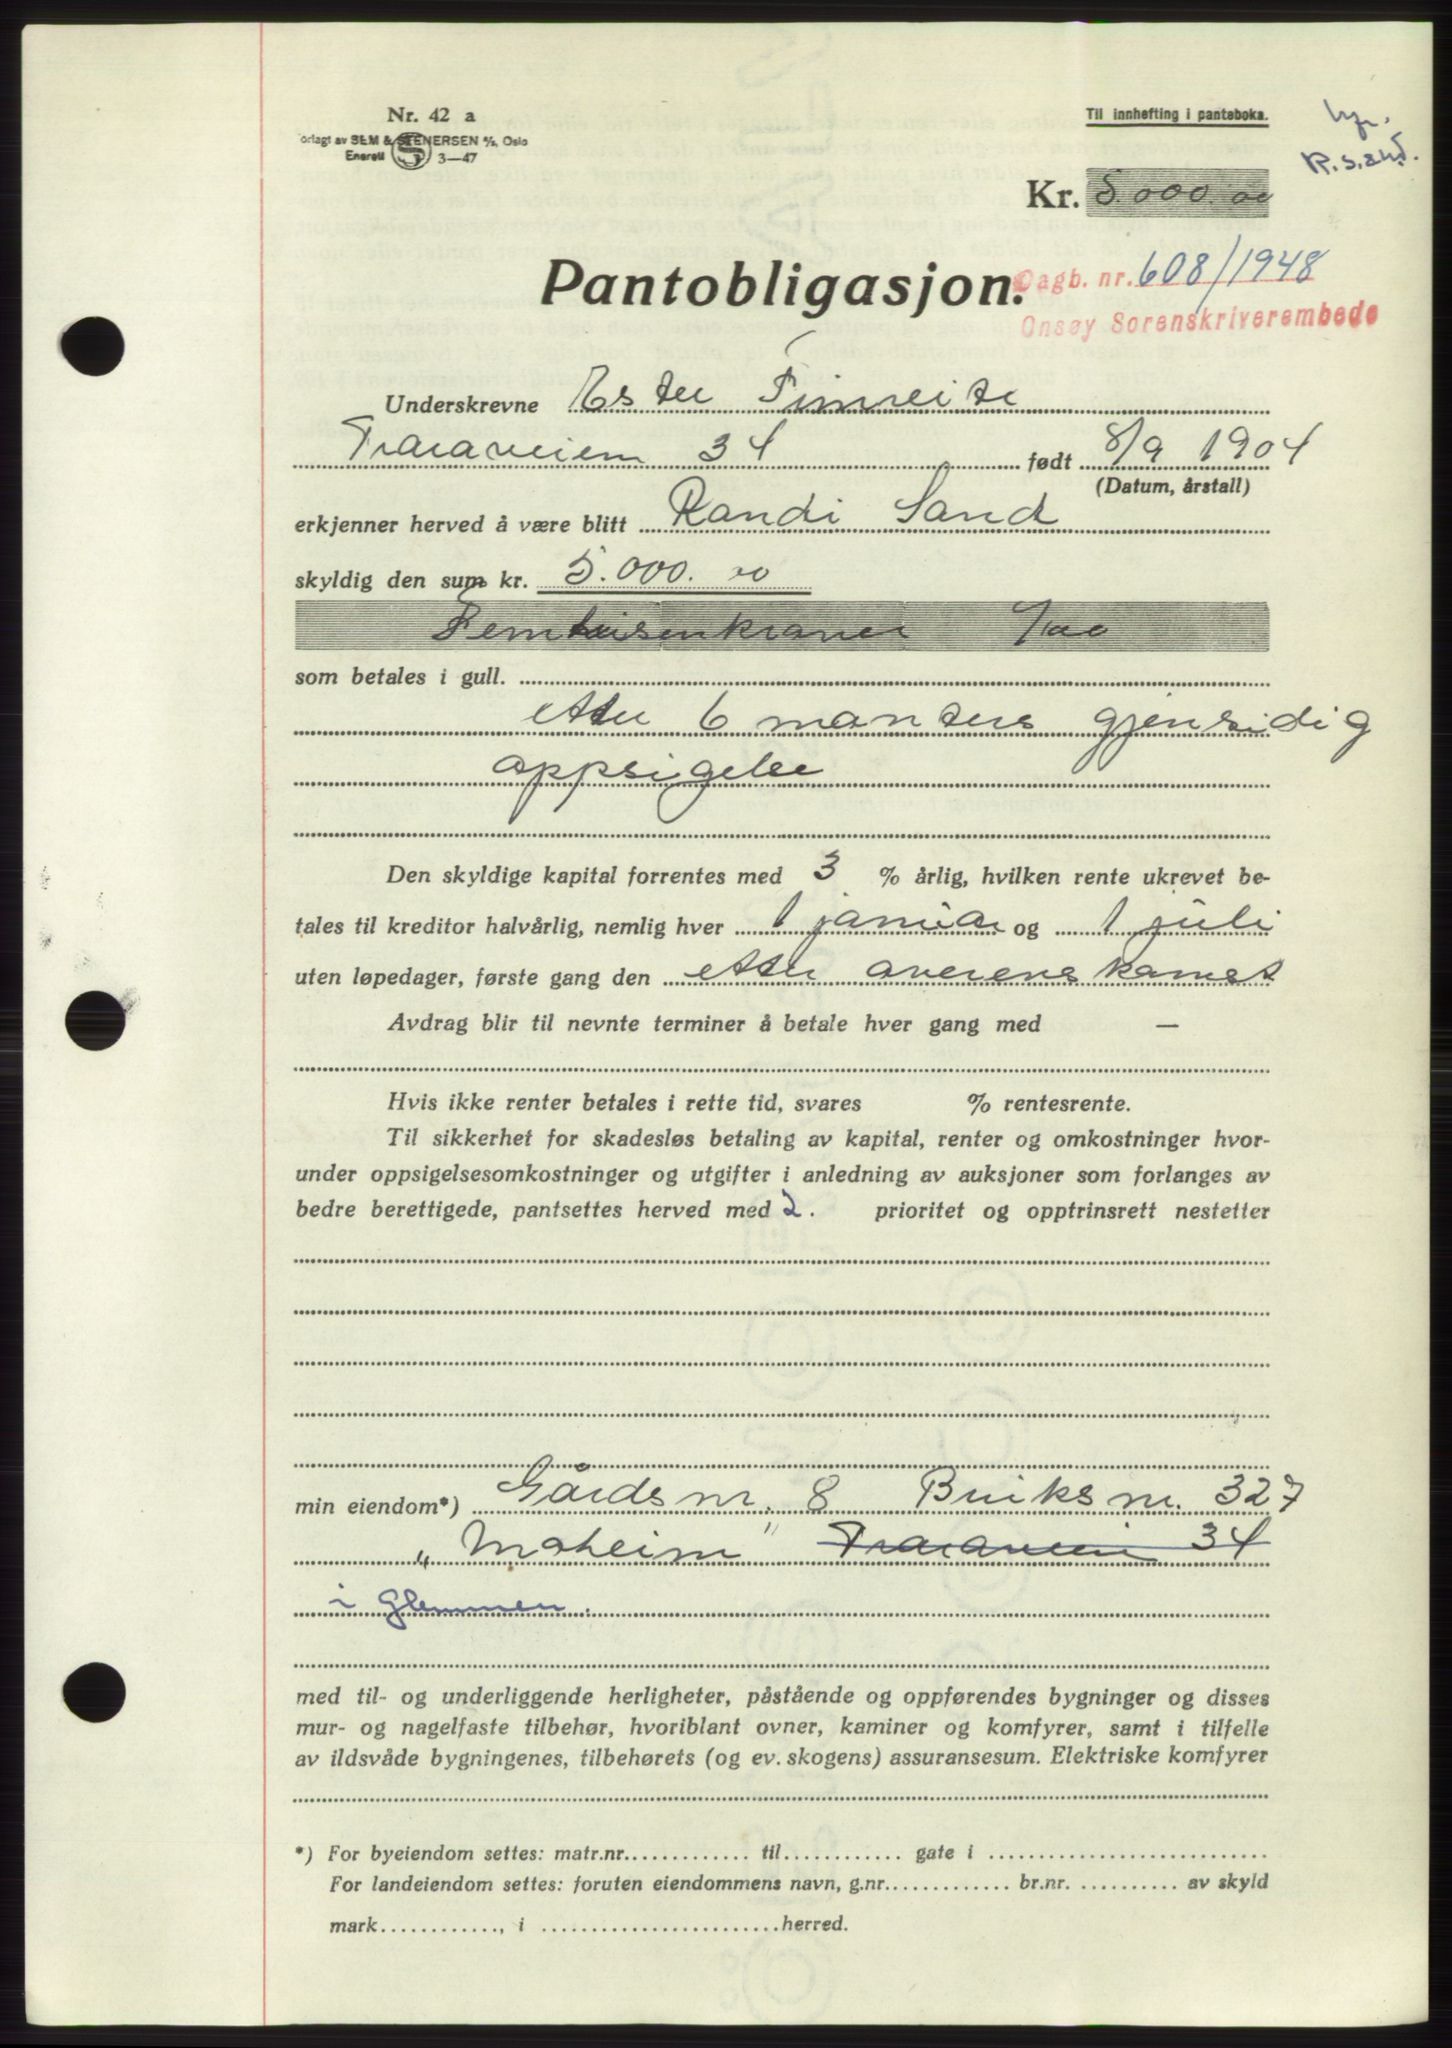 Nr. 42 a
orlagt av SEM & STENERSEN A/S, Oslo
Enerett 3—47
Til innhefting i panteboka.
R. Sand.
Kr. 5.000.00
Pantobligasjon.
Dagb. nr. 608/1948
Onsøy Sorenskriverembede
Underskrevne Ester Fimreite
Traraveien 34 født 8/9 1904
(Datum, årstall)
erkjenner herved å være blitt Randi Sand
skyldig den sum kr. 5.000.00
Femtusenkroner
som betales i gull.
etter 6 måneders gjensidig
oppsigelse
Den skyldige kapital forrentes med 3 % årlig, hvilken rente ukrevet be-
tales til kreditor halvårlig, nemlig hver 1 januar og 1 juli
uten løpedager, første gang den etter overenskomst
Avdrag blir til nevnte terminer å betale hver gang med —
Hvis ikke renter betales i rette tid, svares % rentesrente.
Til sikkerhet for skadesløs betaling av kapital, renter og omkostninger hvor-
under oppsigelsesomkostninger og utgifter i anledning av auksjoner som forlanges av
bedre berettigede, pantsettes herved med 2. prioritet og opptrinsrett nestetter
min eiendom*) Gårdsnr. 8 Bruksnr. 327
„Moheim" Traraveien 34
i Glemmen.
med til- og underliggende herligheter, påstående og oppførendes bygninger og disses
mur- og nagelfaste tilbehør, hvoriblant ovner, kaminer og komfyrer, samt i tilfelle
av ildsvåde bygningenes, tilbehørets (og ev. skogens) assuransesum. Elektriske komfyrer
*) For byeiendom settes: matr.nr............. til............ gate i ............................
For landeiendom settes: foruten eiendommens navn, g.nr............. br.nr. .......... av skyld
mark............, i ........................herred.